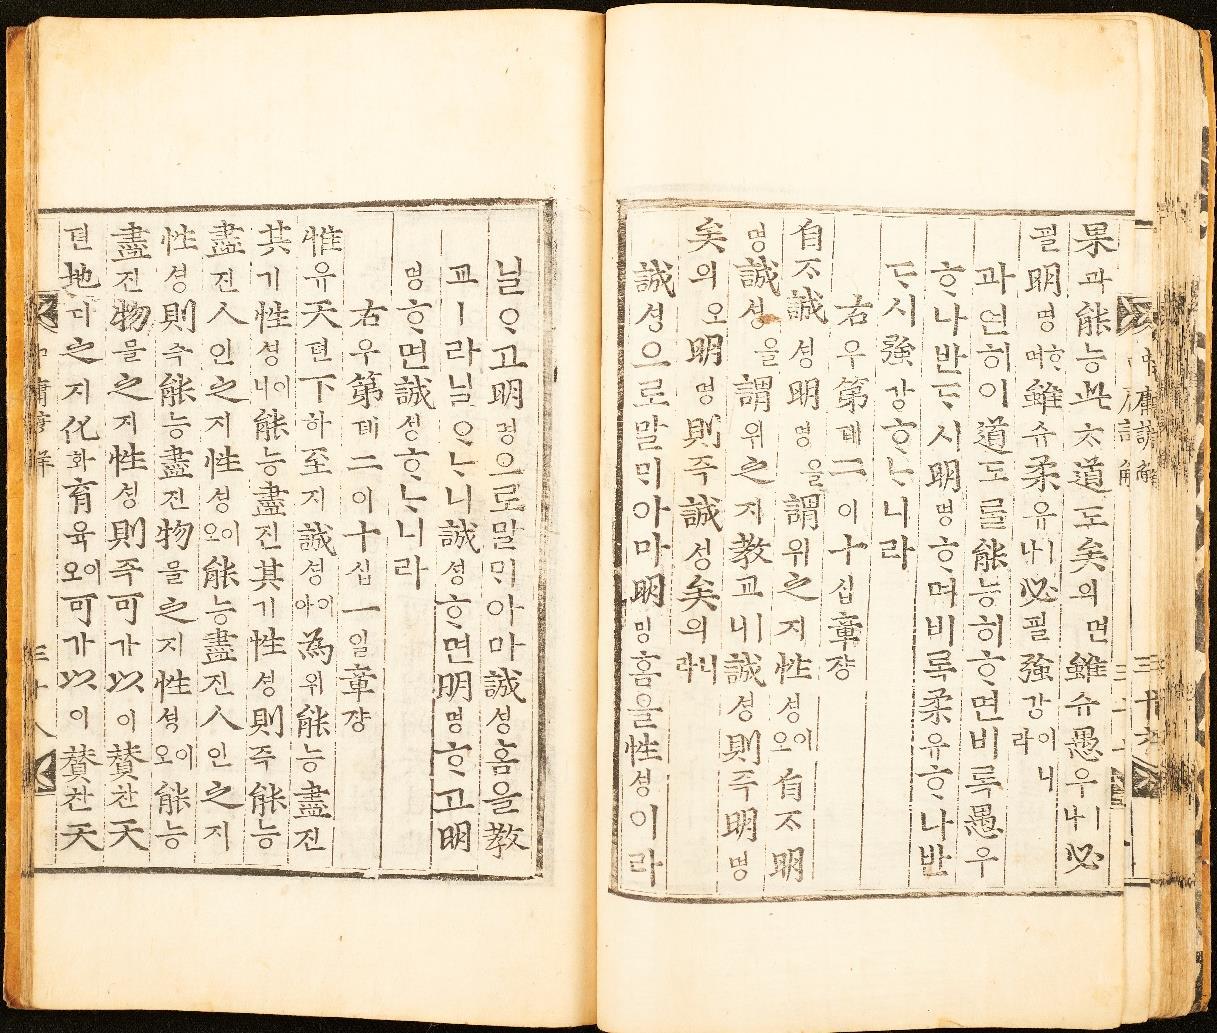 中庸諺解 三十六
果과能능此ᄎᆞ道도矣의면雖슈愚우ㅣ나必
필明명ᄒᆞ며雖슈柔유ㅣ나必필強강이니라
과연히이道도를能능히ᄒᆞ면비록愚우
ᄒᆞ나반ᄃᆞ시明명ᄒᆞ며비록柔유ᄒᆞ나반
ᄃᆞ시強강ᄒᆞᄂᆞ니라
右우第뎨二이十십章쟝
自ᄌᆞ誠셩明명을謂위之지性셩이오自ᄌᆞ明
명誠셩을謂위之지教교ㅣ니誠셩則즉明명
矣의오明명則즉誠셩矣의니라
誠셩으로말ᄆᆡ아마明명홈을性셩이라
닐ᄋᆞ고明명으로말ᄆᆡ아마誠셩홈을教
교ㅣ라닐ᄋᆞᄂᆞ니誠셩ᄒᆞ면明명ᄒᆞ고明
명ᄒᆞ면誠셩ᄒᆞᄂᆞ니라
右우第뎨二이十십一일章쟝
惟유天텬下하至지誠셩이아為위能능盡진
其기性셩이니能능盡진其기性셩則즉能능
盡진人인之지性셩이오能능盡진人인之지
性셩則즉能능盡진物물之지性셩이오能능
盡진物물之지性셩則즉可가以이賛찬天
텬地디之지化화育육이오可가以이賛찬天
中庸諺解 三十八